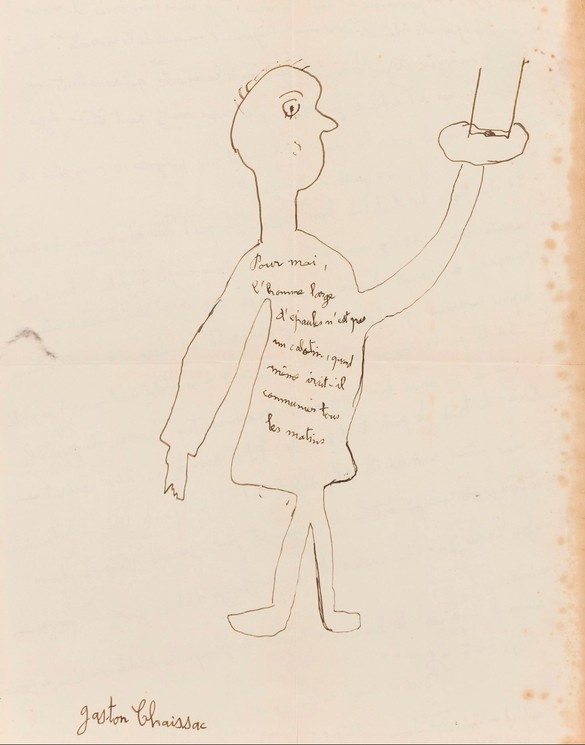 Pour moi,
l'homme large
d'épaules n'est pas
un calotin, quand
même irait-il
communier tous
les matins
gaston Chaissac